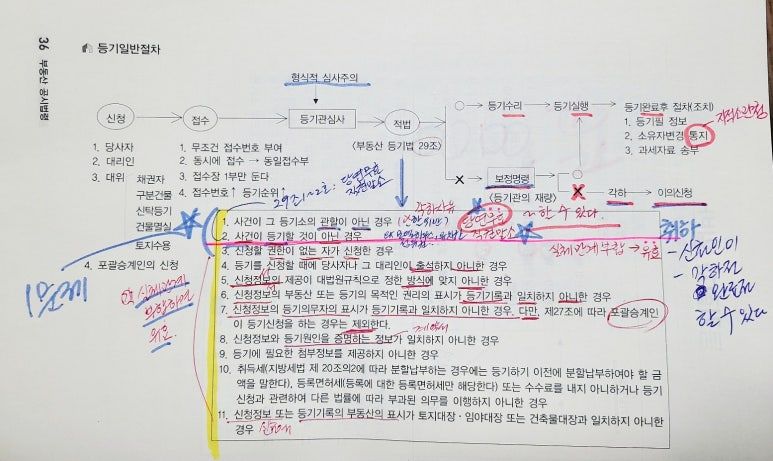 36 부동산 공시법령
등기일반절차
형식적 심사주의
신청 접수 등기관심사 적법 등기수리 등기실행 등기완료후 절차(조치)
1. 등기필 정보
2. 소유자변경 통지
3. 과세자료 송부
지적소관청
<부동산 등기법 29조>
보정명령
<등기관의 재량>
각하 이의신청
1. 당사자
2. 대리인
3. 대위
채권자
구분건물
신탁등기
건물멸실
토지수용
4. 포괄승계인의 신청
1. 무조건 접수번호 부여
2. 동시에 접수 → 동일접수부
3. 접수장 1부만 둔다
4. 접수번호↑ 등기순위↑
29조 1~2호: 당연무효
직권말소
각하사유
당연무효
~할 수 있다.
직권말소
1. 사건이 그 등기소의 관할이 아닌 경우
2. 사건이 등기할 것이 아닌 경우
3. 신청할 권한이 없는 자가 신청한 경우
4. 등기를 신청할 때에 당사자나 그 대리인이 출석하지 아니한 경우
5. 신청정보의 제공이 대법원규칙으로 정한 방식에 맞지 아니한 경우
6. 신청정보의 부동산 또는 등기의 목적인 권리의 표시가 등기기록과 일치하지 아니한 경우
7. 신청정보의 등기의무자의 표시가 등기기록과 일치하지 아니한 경우. 다만, 제27조에 따라 포괄승계인
이 등기신청을 하는 경우는 제외한다.
8. 신청정보와 등기원인을 증명하는 정보가 일치하지 아니한 경우
9. 등기에 필요한 첨부정보를 제공하지 아니한 경우
10. 취득세(지방세법 제 20조의2에 따라 분할납부하는 경우에는 등기하기 이전에 분할납부하여야 할 금
액을 말한다), 등록면허세(등록에 대한 등록면허세만 해당한다) 또는 수수료를 내지 아니하거나 등기
신청과 관련하여 다른 법률에 따라 부과된 의무를 이행하지 아니한 경우
11. 신청정보 또는 등기기록의 부동산의 표시가 토지대장 · 임야대장 또는 건축물대장과 일치하지 아니한
경우
실체관계 부합 → 유효
취하
- 신청인이
- 각하전
할 수 있다
1문제
실체관계
부합하면
유효